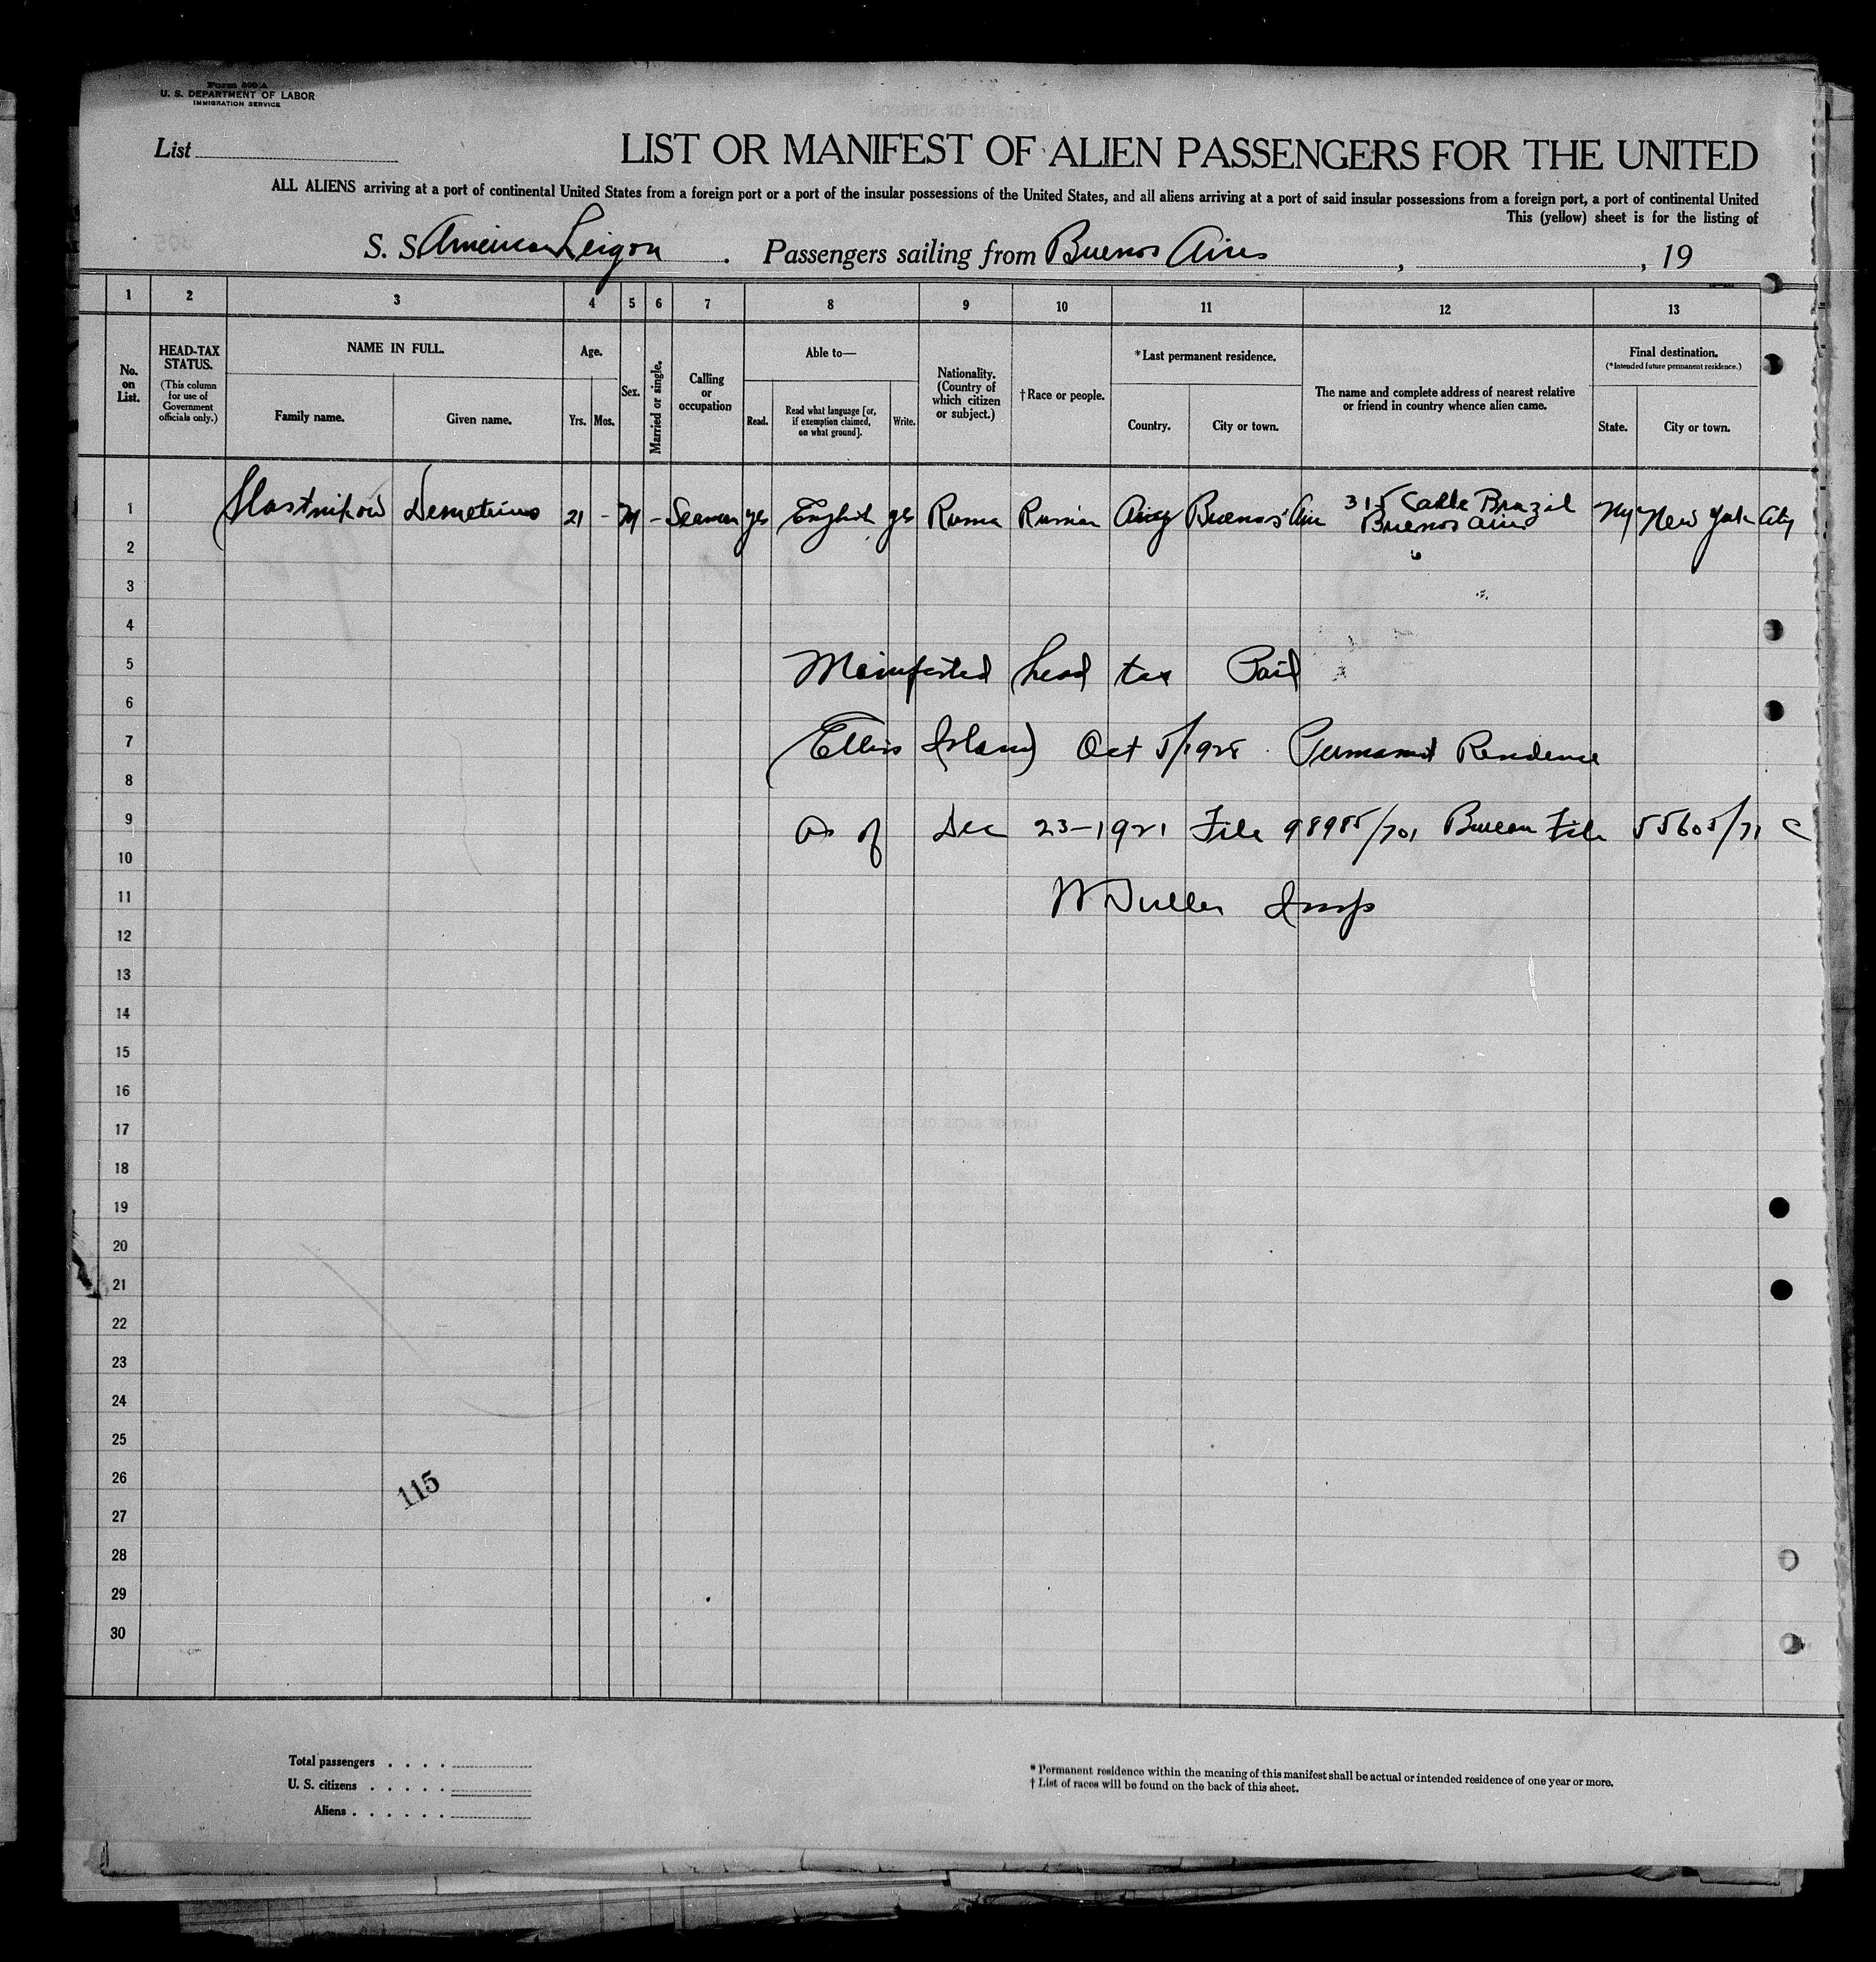 Form 500 A
U. S. DEPARTMENT OF LABOR
IMMIGRATION SERVICE
List
LIST OR MANIFEST OF ALIEN PASSENGERS FOR THE UNITED
ALL ALIENS arriving at a port of continental United States from a foreign port or a port of the insular possessions of the United States, and all aliens arriving at a port of said insular possessions from a foreign port, a port of continental United
This (yellow) sheet is for the listing of
S. S. American Leigon. Passengers sailing from Buenos Aires, , 19
1 2 3 4 5 6 7 8 9 10 11 12 13
No. on List.
HEAD-TAX STATUS.
(This column for use of Government officials only.)
NAME IN FULL.
Family name.
Given name.
Age.
Yrs. Mos.
Sex.
Married or single.
Calling or occupation
Able to—
Read.
Read what language [or, if exemption claimed, on what ground].
Write.
Nationality. (Country of which citizen or subject.)
† Race or people.
* Last permanent residence.
Country.
City or town.
The name and complete address of nearest relative or friend in country whence alien came.
Final destination.
(* Intended future permanent residence.)
State.
City or town.
1 Demetrius 21 - M - Seaman yes English yes Russia Russian Buenos Aires 315 Calle Brazil Buenos Aires NY New York City
2
3
4
5
6
7
8
9
10
11
12
13
14
15
16
17
18
19
20
21
22
23
24
25
26
27
28
29
30
Manifested head tax Paid
Ellis Island Oct 5/1928. Permanent Residence
as of Dec 23-1921 File 98985/701 Bureau File 55605/71 C
Insp
115
Total passengers . . . .
U. S. citizens . . . . .
Aliens . . . . . .
* Permanent residence within the meaning of this manifest shall be actual or intended residence of one year or more.
† List of races will be found on the back of this sheet.